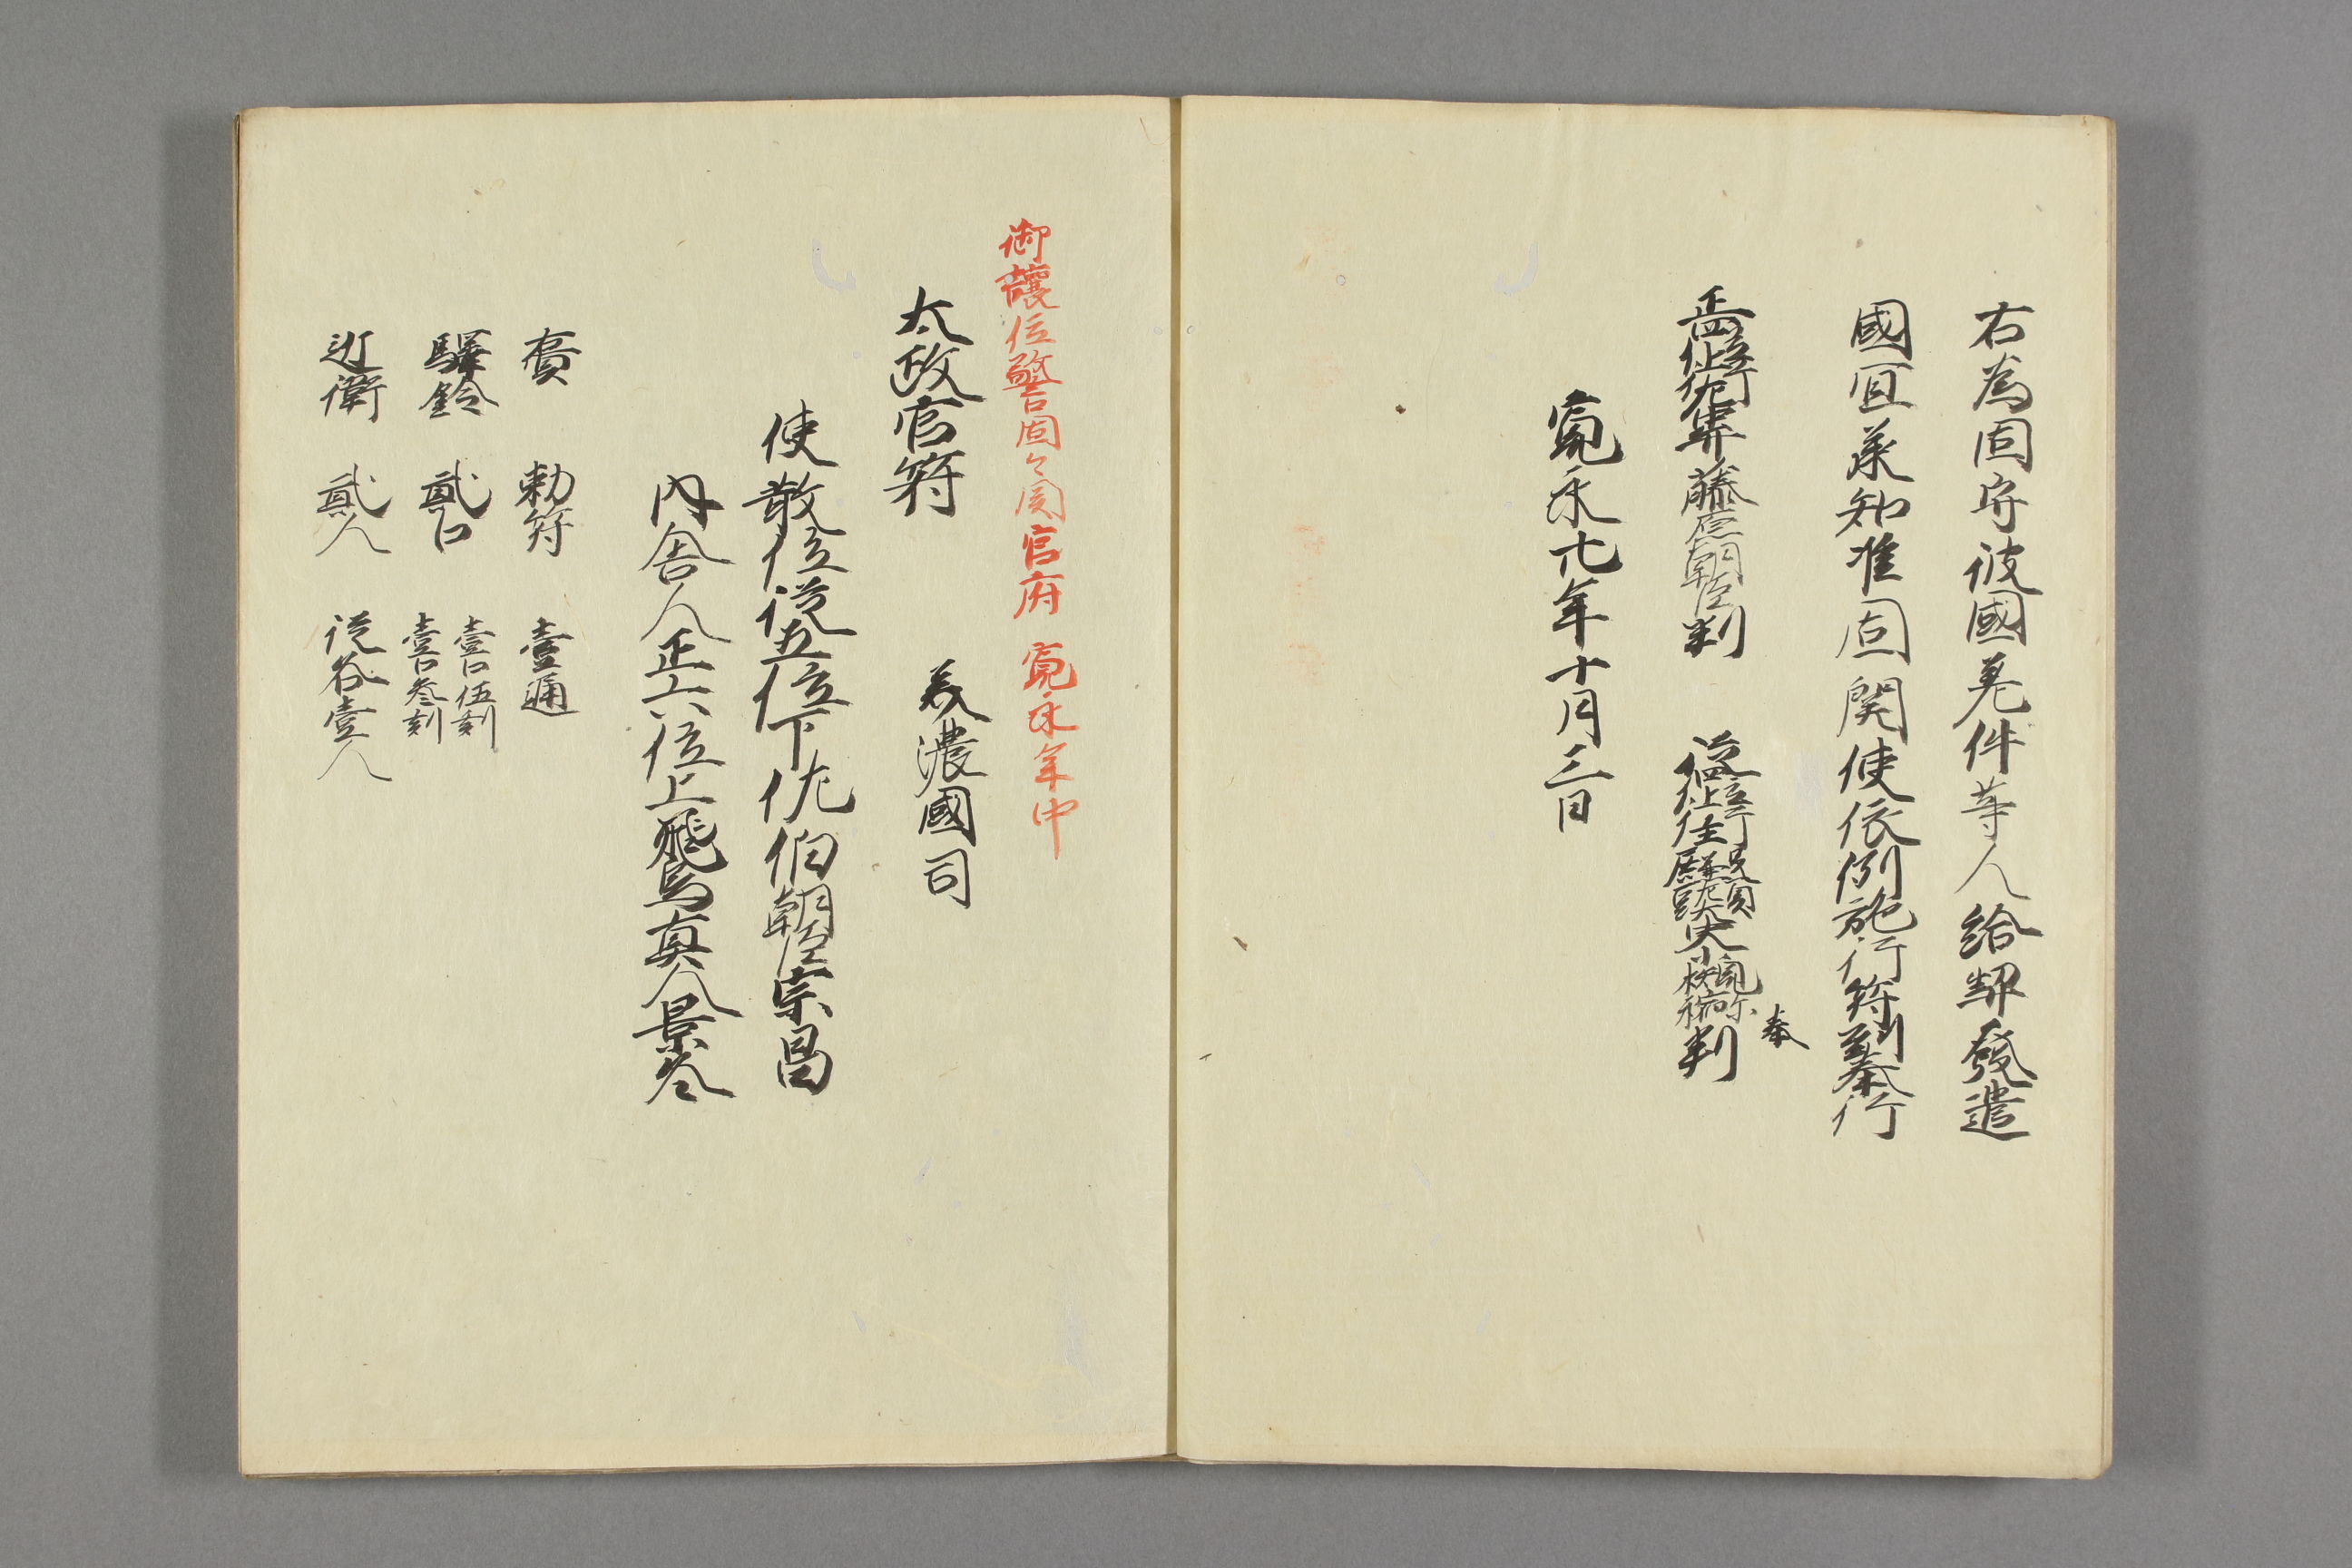 右為固守彼國差件等人給契發遣
國宜承知准固関使依例施行符到奉行
正四位上行左中弁藤原朝臣判
従四位上行主殿頭兼左大史小槻宿祢判
奉
寛永廿年十月三日
御譲位警固々関官府 寛永年中
太政官符 美濃國司
使散位従五位下佐伯朝臣宗昌
内舎人正六位上飛鳥真人景参
賷 勅符 壹通
驛鈴 貳口 壹口伍剋
壹口参剋
近衛 貳人 従各壹人